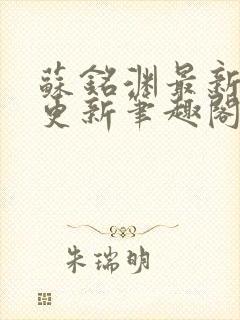 蘇銘淵最新
更新筆趣閣
朱瑞明